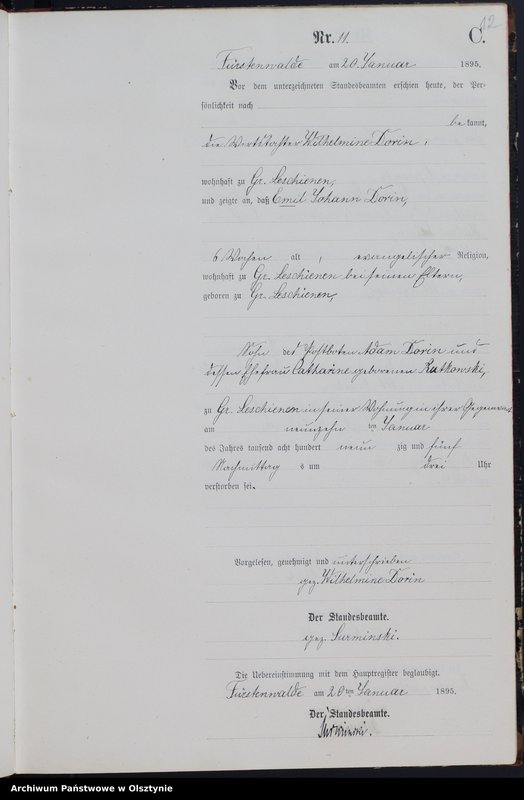 12
Nr. 11.
C.
Fürstenwalde am 20. Januar 1895.
Vor dem unterzeichneten Standesbeamten erschien heute, der Per-
sönlichkeit nach
be kannt,
die Wilhelmine Dorin,
wohnhaft zu Gr. Leschienen,
und zeigte an, daß Emil Johann Dorin,
6 Wochen alt, evangelischer Religion,
wohnhaft zu Gr. Leschienen bei seinen Eltern,
geboren zu Gr. Leschienen,
Sohn des Postboten Adam Dorin und
dessen Ehefrau Catharine geborenen Rutkowski,
zu Gr. Leschienen in seiner Wohnung in ihrer Gegenwart
am neunzehn ten Januar
des Jahres tausend acht hundert neun zig und fünf
Nachmittag s um drei Uhr
verstorben sei.
Vorgelesen, genehmigt und unterschrieben
gez. Wilhelmine Dorin
Der Standesbeamte.
gez. Surminski.
Die Uebereinstimmung mit dem Hauptregister beglaubigt.
Fürstenwalde am 20ten Januar 1895.
Der Standesbeamte.
Surminski.
Archiwum Państwowe w Olsztynie